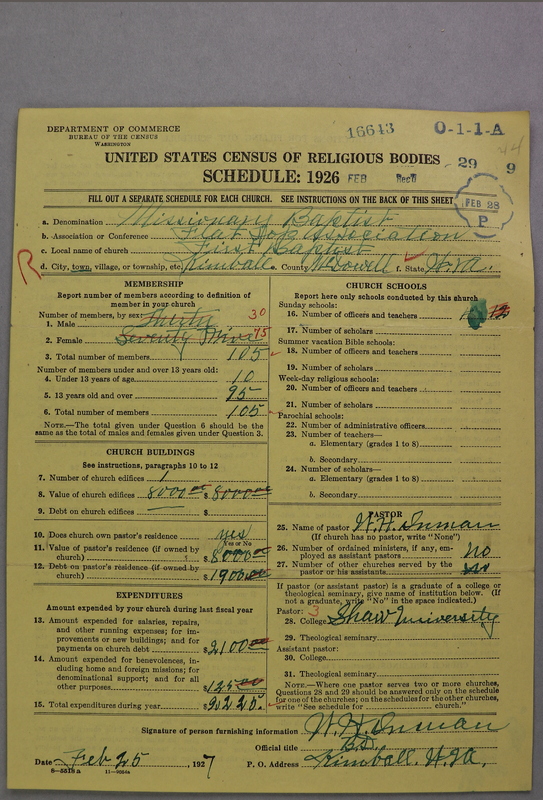 DEPARTMENT OF COMMERCE
BUREAU OF THE CENSUS
WASHINGTON
16643
0-1-1-A
44
UNITED STATES CENSUS OF RELIGIOUS BODIES
29
9
SCHEDULE: 1926
FEB
Rec'd
FILL OUT A SEPARATE SCHEDULE FOR EACH CHURCH. SEE INSTRUCTIONS ON THE BACK OF THIS SHEET
FEB 28
P
a. Denomination Missionary Baptist
b. Association or Conference Flat Top Association
c. Local name of church First Baptist
R
d. City, town, village, or township, etc. Kimball e. County McDowell f. State W.Va.
MEMBERSHIP
Report number of members according to definition of member in your church
Number of members, by sex:
1. Male Thirty 30
2. Female Seventy Five 75
3. Total number of members 105
Number of members under and over 13 years old:
4. Under 13 years of age 10
5. 13 years old and over 95
6. Total number of members 105
NOTE.—The total given under Question 6 should be the
same as the total of males and females given under Question 3.
CHURCH BUILDINGS
See instructions, paragraphs 10 to 12
7. Number of church edifices 1
8. Value of church edifices 8000.00 $ 8000.00
9. Debt on church edifices — $
10. Does church own pastor's residence yes
Yes or No
11. Value of pastor's residence (if owned by
church) $ 8000.00
12. Debt on pastor's residence (if owned by
church) $ 1900.00
EXPENDITURES
Amount expended by your church during last fiscal year
13. Amount expended for salaries, repairs,
and other running expenses; for im-
provements or new buildings; and for
payments on church debt $ 2100.00
14. Amount expended for benevolences, in-
cluding home and foreign missions; for
denominational support; and for all
other purposes $ 125.00
15. Total expenditures during year $
CHURCH SCHOOLS
Report here only schools conducted by this church
Sunday schools:
16. Number of officers and teachers 12
17. Number of scholars
Summer vacation Bible schools:
18. Number of officers and teachers
19. Number of scholars
Week-day religious schools:
20. Number of officers and teachers
21. Number of scholars
Parochial schools:
22. Number of administrative officers
23. Number of teachers—
a. Elementary (grades 1 to 8)
b. Secondary
24. Number of scholars—
a. Elementary (grades 1 to 8)
b. Secondary
PASTOR
25. Name of pastor W. H. Inman
(If church has no pastor, write "None")
26. Number of ordained ministers, if any, em-
ployed as assistant pastors no
27. Number of other churches served by the
pastor or his assistants no
If pastor (or assistant pastor) is a graduate of a college or
theological seminary, give name of institution below. (If
not a graduate, write "No" in the space indicated.)
Pastor: 3
28. College Shaw University
29. Theological seminary
Assistant pastor:
30. College
31. Theological seminary
NOTE.—Where one pastor serves two or more churches,
Questions 28 and 29 should be answered only on the schedule
for one of the churches; on the schedules for the other churches,
write "See schedule for church."
Signature of person furnishing information W. H. Inman
Official title B.D.
Date Feb 25, 1927
P. O. Address Kimball. W.Va.
8-5518a